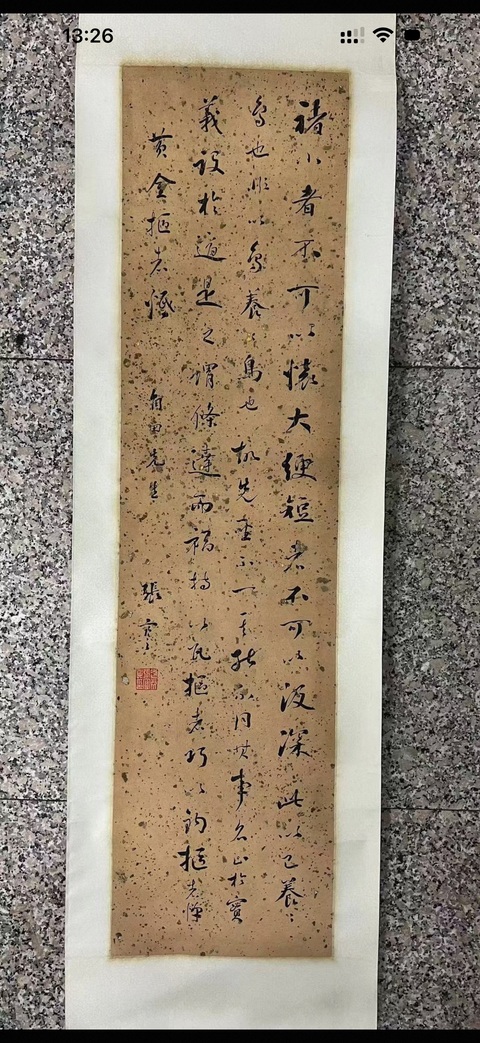 13:26
褚小者不可以懷大綆短者不可以汲深此以己養々
鳥也非以鳥養々鳥也故先聖不一其能不同其事名止於實
義設於適是之謂條達而福持以瓦摳者巧以鉤摳者憚
黃金摳者
先生
張謇